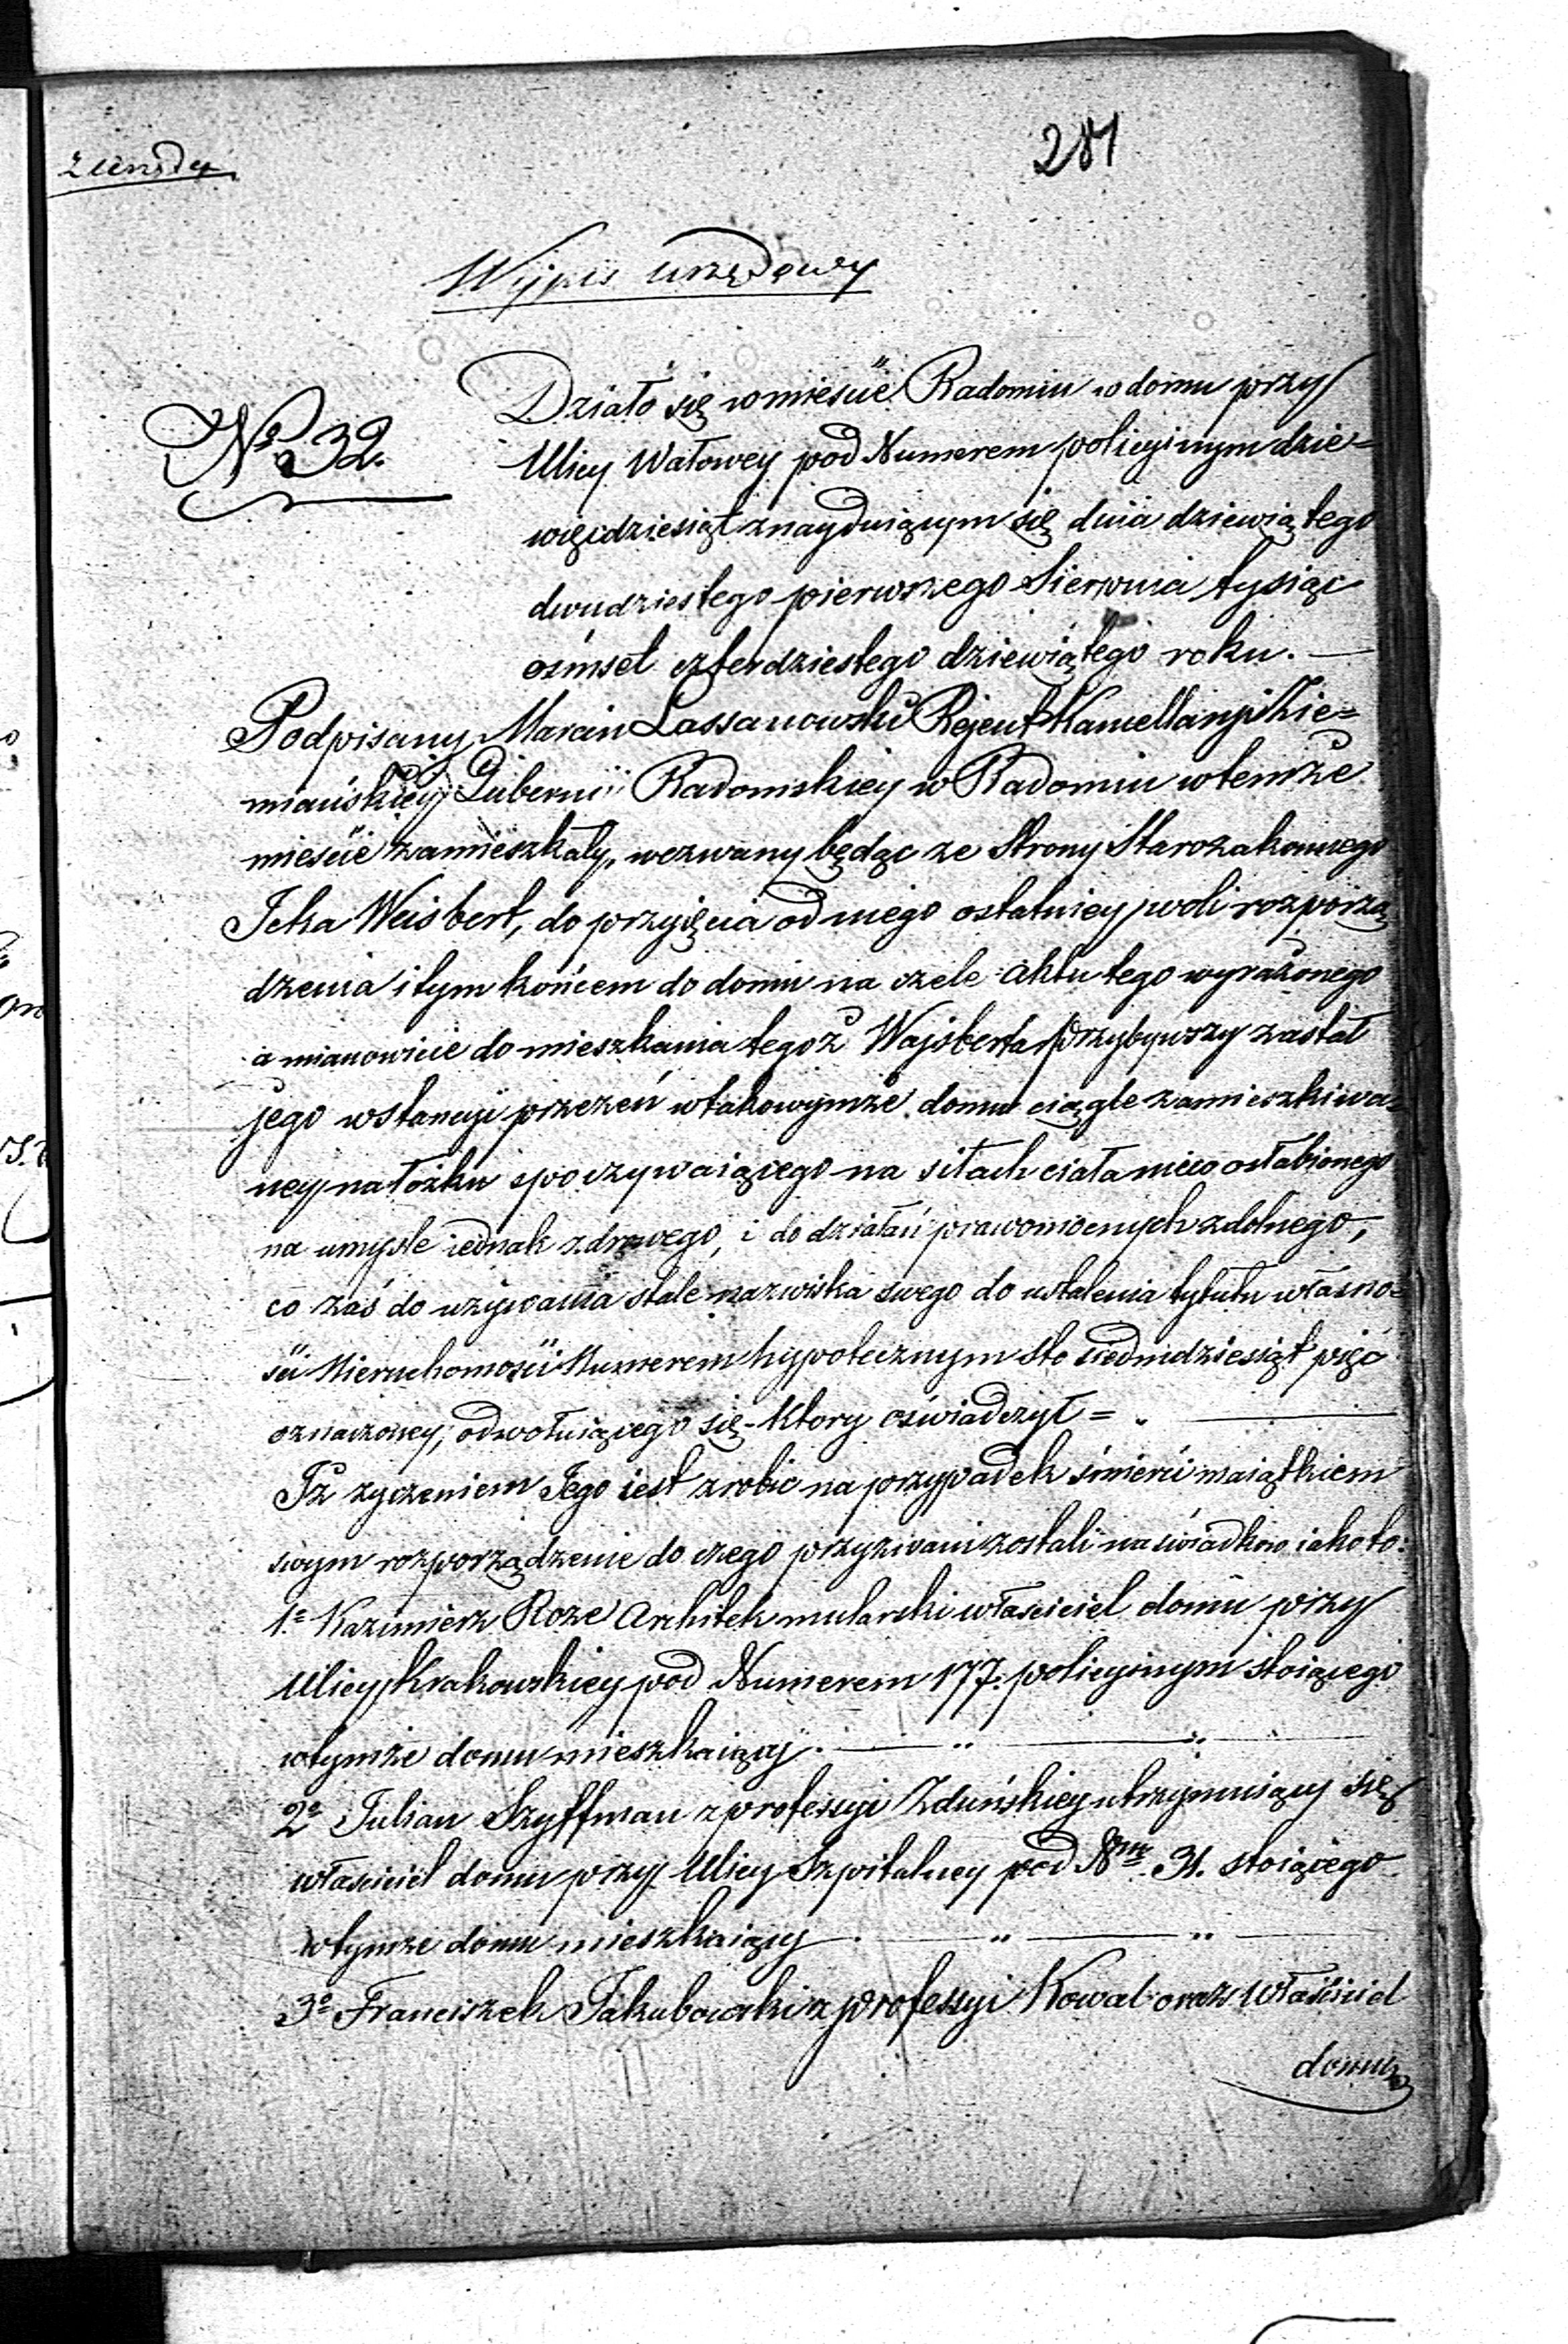 z urzędu
281
Wypis urzędowy
№ 32.
Działo się w mieście Radomiu w domu przy
Ulicy Wałowey pod Numerem policyinym dzie=
więćdziesiąt znayduiącym się dnia dziewiątego
dwudziestego pierwszego Sierpnia tysiąc
ośmset czterdziestego dziewiątego roku. —
Podpisany Marcin Lassanowski Rejent Kancellaryi Zie=
miańskiey Gubernii Radomskiey w Radomiu w temże
mieście zamieszkały, wezwany będąc ze Strony Starozakonnego
Icka Weisbert, do przyięcia od niego ostatniey woli rozporzą
dzenia i tym końcem do domu na czele aktu tego wyrażonego
a mianowicie do mieszkania tegoż Wajsberta przybywszy zastał
jego w stancyi przezeń w takowymże domu ciągle zamieszkiwa=
ney na łóżku spoczywaiącego na siłach ciała nieco osłabionego
na umyśle iednak zdrowego, i do działań prawomocnych zdolnego,
co zaś do używania stale nazwiska swego do ustalenia tytułu własno=
ści Nieruchomości Numerem hypotecznym Sto siedmdziesiąt pięć
oznaczoney, odwołuiącego się - Ktory oświadczył =
Iż życzeniem Jego iest zrobić na przypadek śmierci maiątkiem
swym rozporządzenie do czego przyzwani zostali na świadków iako to:
1e Kazimierz Roze Architek mularski właściciel domu przy
Ulicy Krakowskiey pod Numerem 177. policyinym stoiącego
w tymże domu mieszkaiący. — " — " —
2e Julian Szyffman z professyi Zduńskiey utrzymuiący się
właściciel domu przy Ulicy Szpitalney pod Nrem 31. stoiącego
w tymże domu mieszkaiący — " — " —
3e Franciszek Jakubowski z professyi Kowal oraz Właściciel
domu